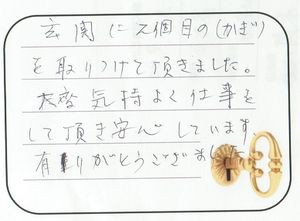 玄関に2個目の(かぎ)
を取りつけて頂きました。
大変気持よく仕事を
して頂き安心しています
有りがとうございま